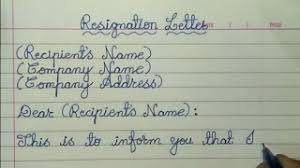 Resignation Letter
(Recipient's Name)
(Company Name)
(Company Address)
Dear (Recipient's Name):
This is to inform you that I